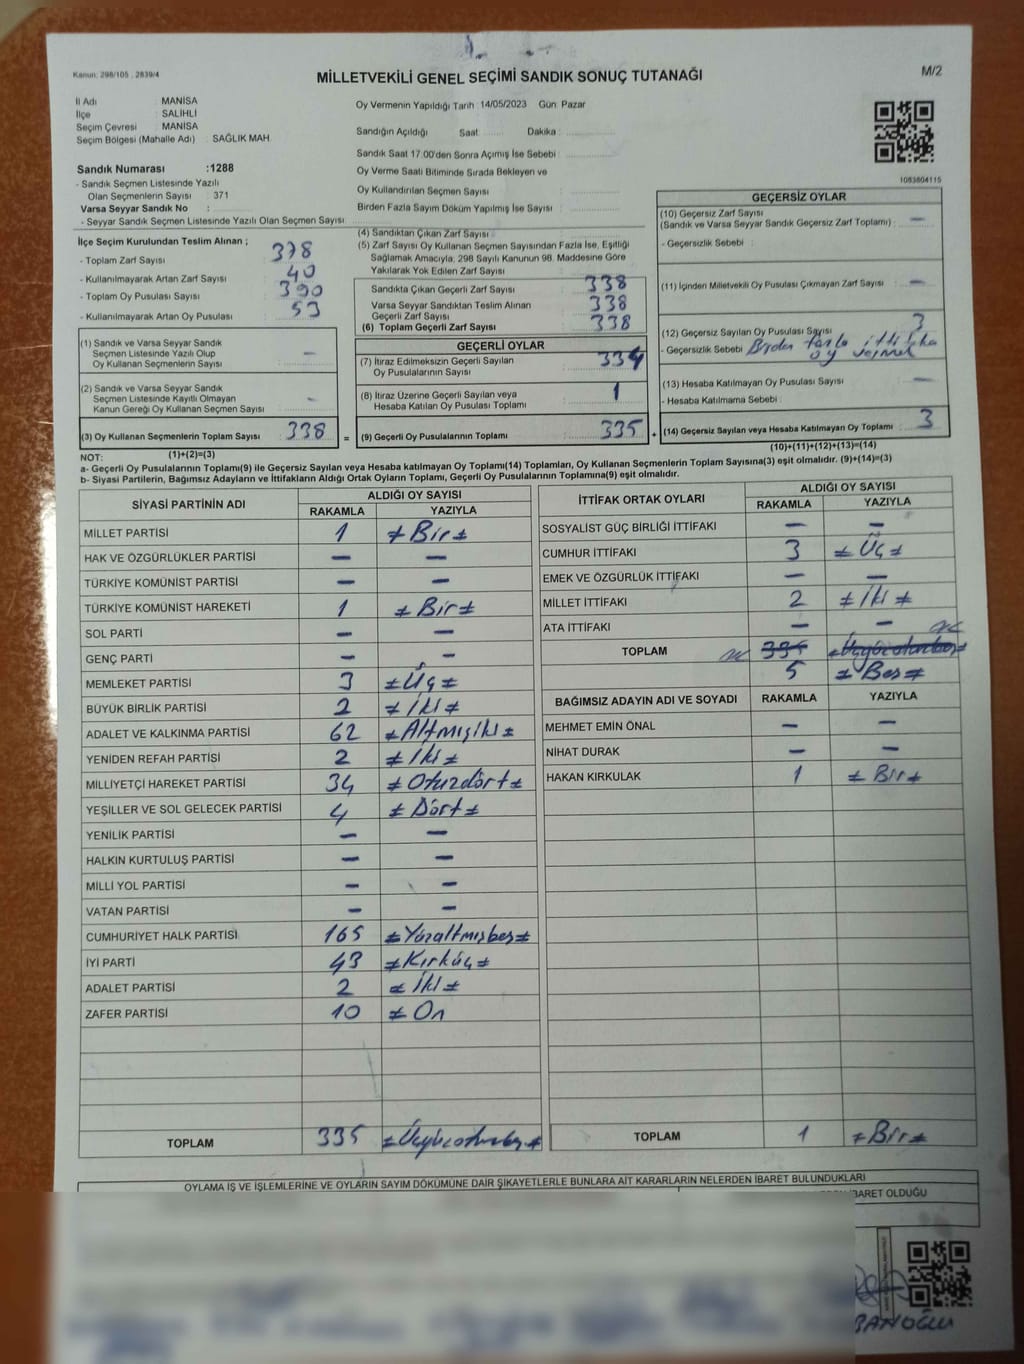 Kanun: 298/105 , 2839/4
MİLLETVEKİLİ GENEL SEÇİMİ SANDIK SONUÇ TUTANAĞI
M/2
İl Adı : MANİSA
İlçe : SALİHLİ
Seçim Çevresi : MANİSA
Seçim Bölgesi (Mahalle Adı) : SAĞLIK MAH.
Sandık Numarası :1288
- Sandık Seçmen Listesinde Yazılı
Olan Seçmenlerin Sayısı : 371
Varsa Seyyar Sandık No :
- Seyyar Sandık Seçmen Listesinde Yazılı Olan Seçmen Sayısı:
Oy Vermenin Yapıldığı Tarih: 14/05/2023 Gün: Pazar
Sandığın Açıldığı Saat: Dakika:
Sandık Saat 17.00'den Sonra Açımış İse Sebebi :
Oy Verme Saati Bitiminde Sırada Bekleyen ve
Oy Kullandırılan Seçmen Sayısı :
Birden Fazla Sayım Döküm Yapılmış İse Sayısı :
1083804115
İlçe Seçim Kurulundan Teslim Alınan ;
- Toplam Zarf Sayısı : 378
- Kullanılmayarak Artan Zarf Sayısı : 40
- Toplam Oy Pusulası Sayısı : 390
- Kullanılmayarak Artan Oy Pusulası : 53
(1) Sandık ve Varsa Seyyar Sandık
Seçmen Listesinde Yazılı Olup
Oy Kullanan Seçmenlerin Sayısı : —
(2) Sandık ve Varsa Seyyar Sandık
Seçmen Listesinde Kayıtlı Olmayan
Kanun Gereği Oy Kullanan Seçmen Sayısı : -
(3) Oy Kullanan Seçmenlerin Toplam Sayısı : 338
(4) Sandıktan Çıkan Zarf Sayısı :
(5) Zarf Sayısı Oy Kullanan Seçmen Sayısından Fazla İse, Eşitliği
Sağlamak Amacıyla, 298 Sayılı Kanunun 98. Maddesine Göre
Yakılarak Yok Edilen Zarf Sayısı :
Sandıkta Çıkan Geçerli Zarf Sayısı : 338
Varsa Seyyar Sandıktan Teslim Alınan
Geçerli Zarf Sayısı : 338
(6) Toplam Geçerli Zarf Sayısı : 338
GEÇERLİ OYLAR
(7) İtiraz Edilmeksizin Geçerli Sayılan
Oy Pusulalarının Sayısı : 334
(8) İtiraz Üzerine Geçerli Sayılan veya
Hesaba Katılan Oy Pusulası Toplamı : 1
= (9) Geçerli Oy Pusulalarının Toplamı : 335 +
GEÇERSİZ OYLAR
(10) Geçersiz Zarf Sayısı
(Sandık ve Varsa Seyyar Sandık Geçersiz Zarf Toplamı) : —
- Geçersizlik Sebebi :
(11) İçinden Milletvekili Oy Pusulası Çıkmayan Zarf Sayısı : —
(12) Geçersiz Sayılan Oy Pusulası Sayısı : 3
- Geçersizlik Sebebi : Birden fazla ittifaka
oy vermek
(13) Hesaba Katılmayan Oy Pusulası Sayısı : —
- Hesaba Katılmama Sebebi :
(14) Geçersiz Sayılan veya Hesaba Katılmayan Oy Toplamı : 3
NOT: (1)+(2)=(3)
(10)+(11)+(12)+(13)=(14)
a- Geçerli Oy Pusulalarının Toplamı(9) ile Geçersiz Sayılan veya Hesaba katılmayan Oy Toplamı(14) Toplamları, Oy Kullanan Seçmenlerin Toplam Sayısına(3) eşit olmalıdır. (9)+(14)=(3)
b- Siyasi Partilerin, Bağımsız Adayların ve İttifakların Aldığı Ortak Oyların Toplamı, Geçerli Oy Pusulalarının Toplamına(9) eşit olmalıdır.
SİYASİ PARTİNİN ADI ALDIĞI OY SAYISI
RAKAMLA YAZIYLA
MİLLET PARTİSİ 1 Bir
HAK VE ÖZGÜRLÜKLER PARTİSİ — —
TÜRKİYE KOMÜNİST PARTİSİ — —
TÜRKİYE KOMÜNİST HAREKETİ 1 Bir
SOL PARTİ — —
GENÇ PARTİ — —
MEMLEKET PARTİSİ 3 Üç
BÜYÜK BİRLİK PARTİSİ 2 İki
ADALET VE KALKINMA PARTİSİ 62 Altmışiki
YENİDEN REFAH PARTİSİ 2 İki
MİLLİYETÇİ HAREKET PARTİSİ 34 Otuzdört
YEŞİLLER VE SOL GELECEK PARTİSİ 4 Dört
YENİLİK PARTİSİ — —
HALKIN KURTULUŞ PARTİSİ — —
MİLLİ YOL PARTİSİ — —
VATAN PARTİSİ — —
CUMHURİYET HALK PARTİSİ 165 Yüzaltmışbeş
İYİ PARTİ 43 Kırküç
ADALET PARTİSİ 2 İki
ZAFER PARTİSİ 10 On
TOPLAM 335 Üçyüzotuzbeş
İTTİFAK ORTAK OYLARI ALDIĞI OY SAYISI
RAKAMLA YAZIYLA
SOSYALİST GÜÇ BİRLİĞİ İTTİFAKI — —
CUMHUR İTTİFAKI 3 Üç
EMEK VE ÖZGÜRLÜK İTTİFAKI — —
MİLLET İTTİFAKI 2 İki
ATA İTTİFAKI — —
TOPLAM 335 Üçyüzotuzbeş
5 Beş
BAĞIMSIZ ADAYIN ADI VE SOYADI RAKAMLA YAZIYLA
MEHMET EMİN ÖNAL — —
NİHAT DURAK — —
HAKAN KIRKULAK 1 Bir
TOPLAM 1 Bir
OYLAMA İŞ VE İŞLEMLERİNE VE OYLARIN SAYIM DÖKÜMÜNE DAİR ŞİKAYETLERLE BUNLARA AİT KARARLARIN NELERDEN İBARET BULUNDUKLARI
İBARET OLDUĞU